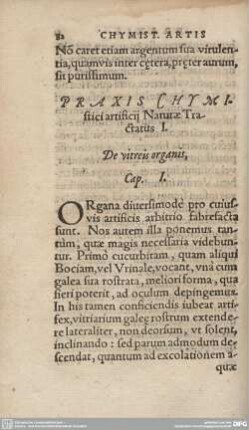 82 CHYMIST. ARTIS
Nõ caret etiam argentum sua virulen-
tia, quamvis inter cętera, pręter aurum,
sit purissimum.
PRAXIS CHYMI-
stici artificij Naturæ Tra-
ctatus I.
De vitreis organis,
Cap. I.
ORgana diversimodè pro cuius-
vis artificis arbitrio fabrefacta
sunt. Nos autem illa ponemus tan-
tùm, quæ magis necessaria videbun-
tur. Primò cucurbitam, quam aliqui
Bociam, vel Vrinale, vocant, vnà cum
galea sua rostrata, meliori forma, qua
fieri poterit, ad oculum depingemus.
In his tamen conficiendis iubeat arti-
fex, vittriarium galeę rostrum extende-
re lateraliter, non deorsum, vt solent,
inclinando: sed parum admodum de-
scendat, quantum ad excolationem a-
quæ